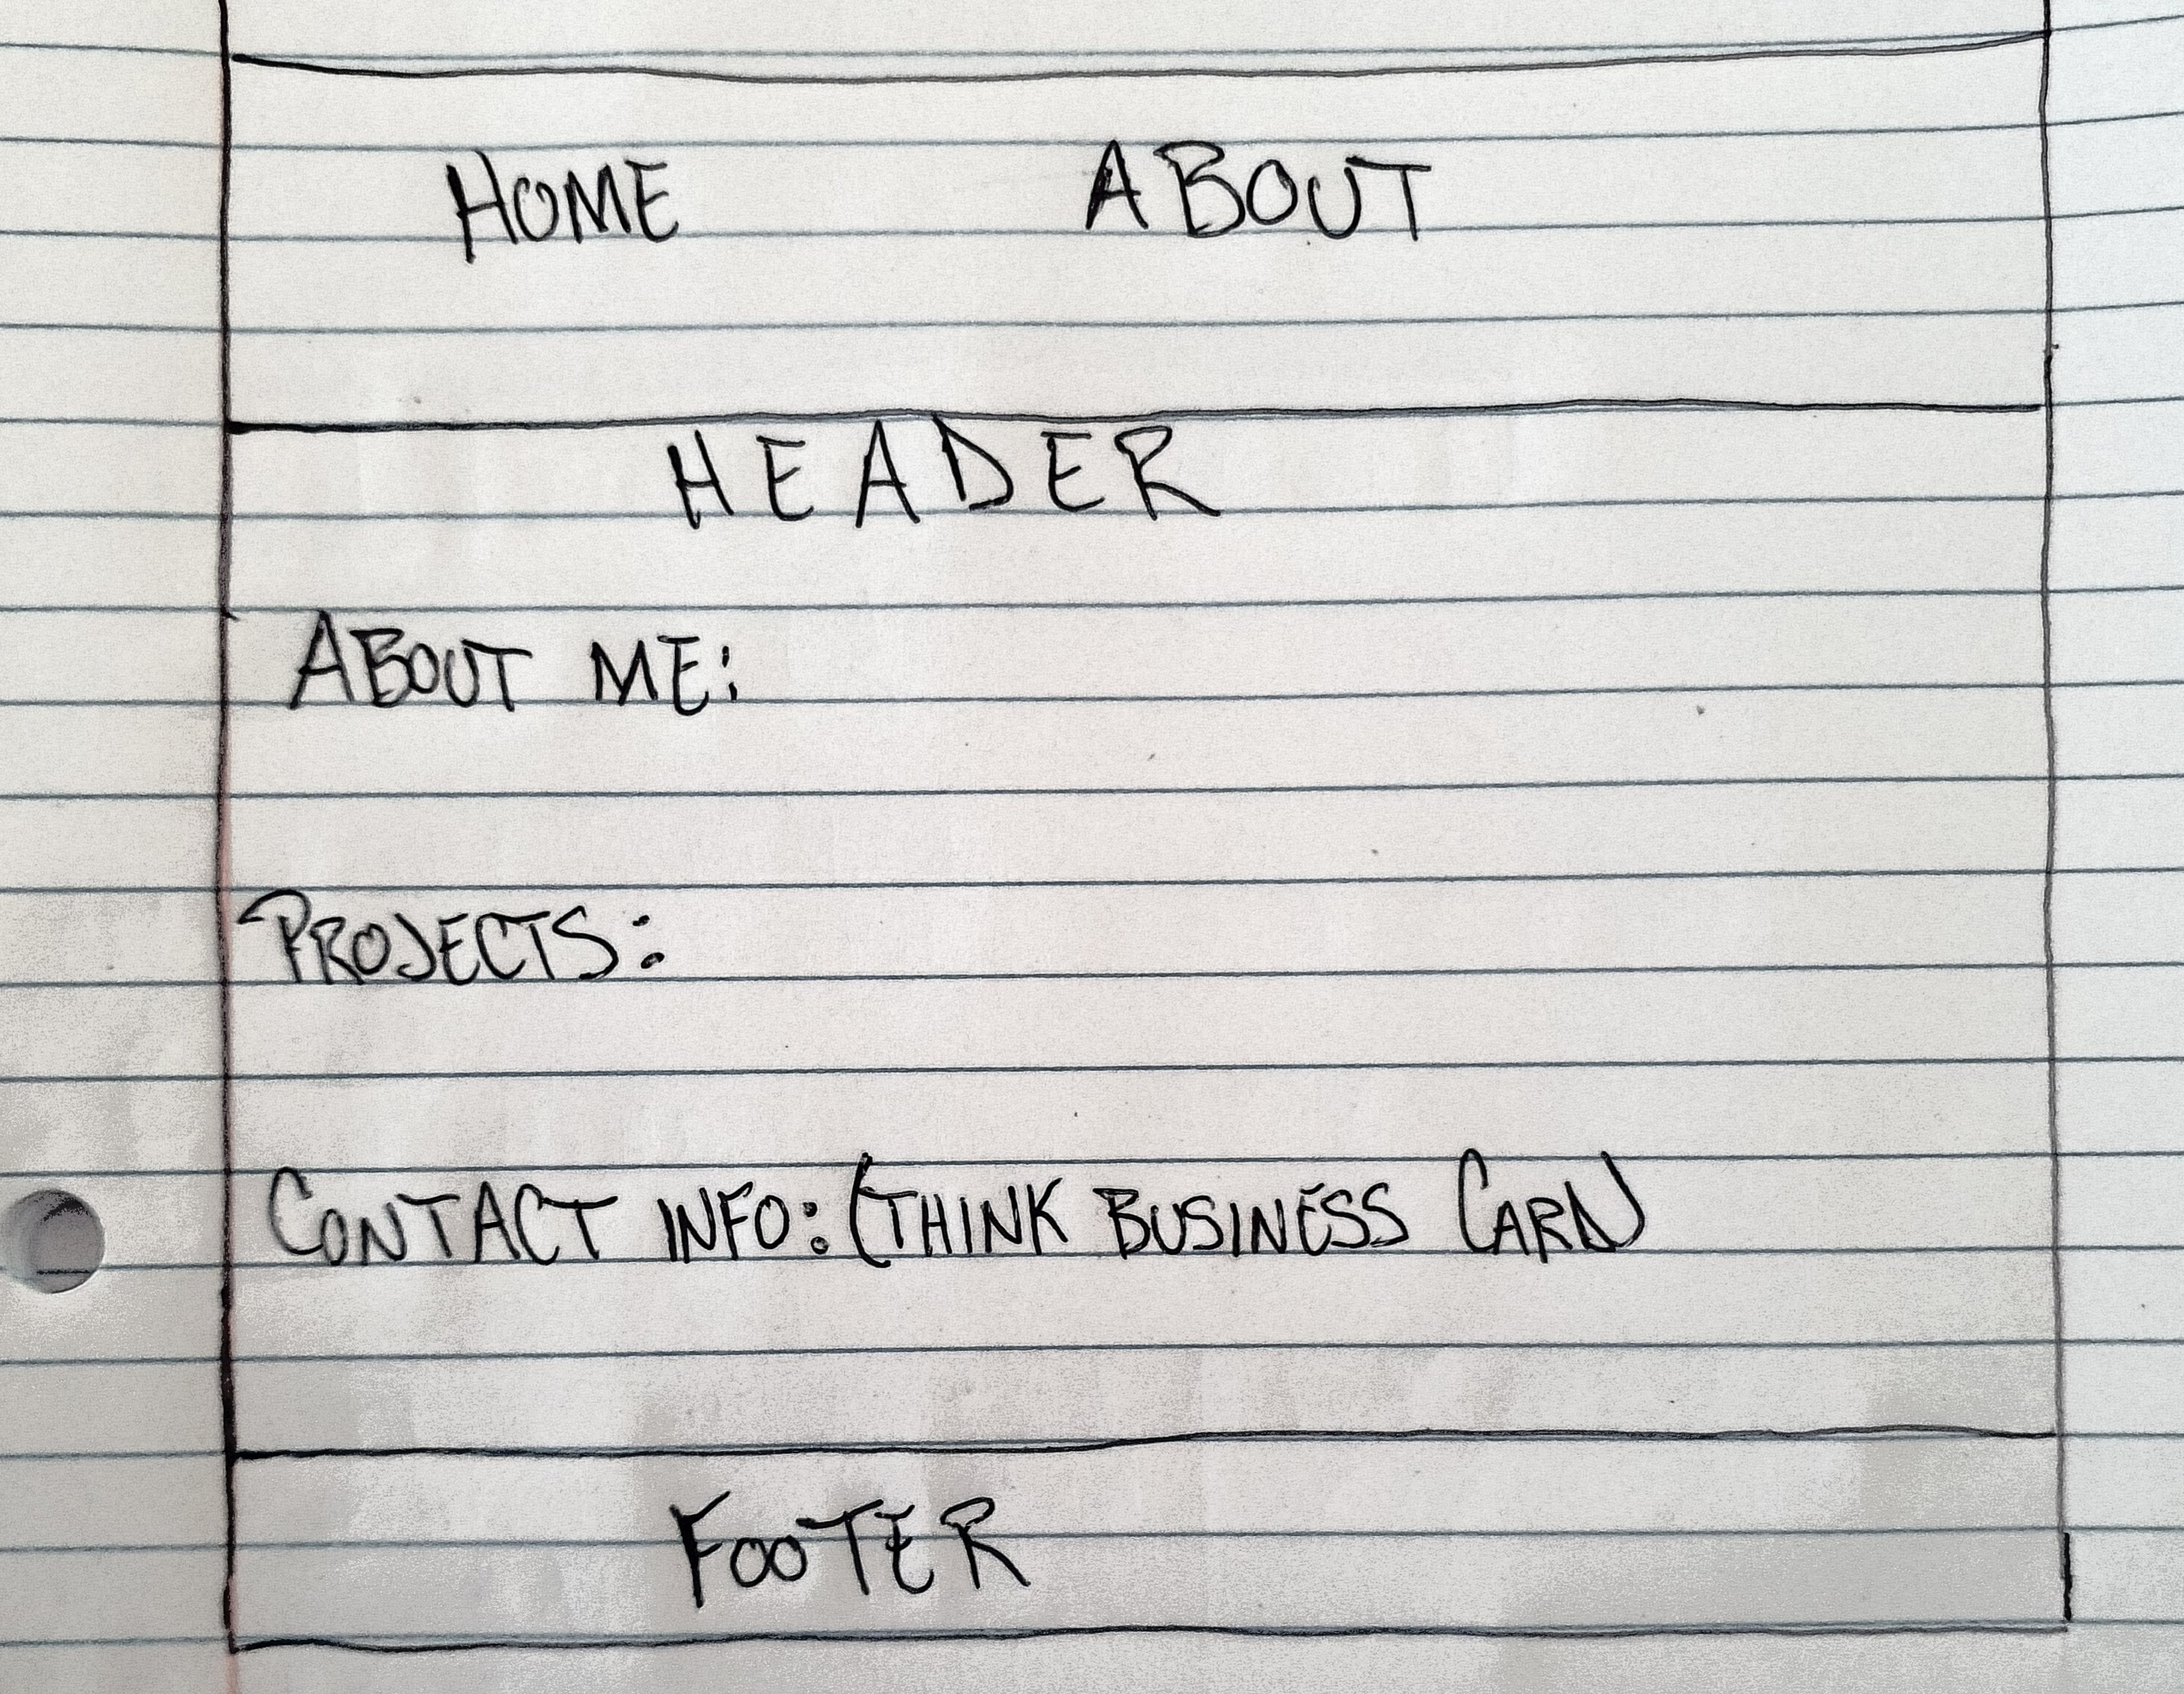 HOME ABOUT
HEADER
ABOUT ME:
PROJECTS:
CONTACT INFO: (THINK BUSINESS CARD)
FOOTER